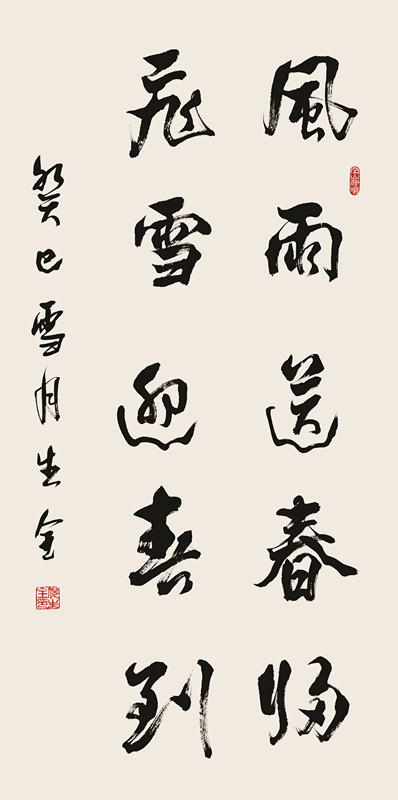 風雨送春歸
飛雪迎春到
癸巳雪月生全